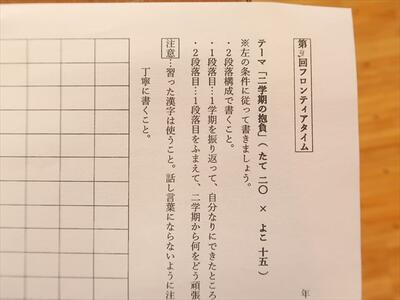 第 回フロンティアタイム
テーマ「二学期の抱負」(たて 二〇 × よこ 十五 )
※左の条件に従って書きましょう。
・2段落構成で書くこと。
・1段落目…1学期を振り返って、自分なりにできたところ
・2段落目…1段落目をふまえて、二学期から何をどう頑張
注意…習った漢字は使うこと。話し言葉にならないように注
丁寧に書くこと。
年